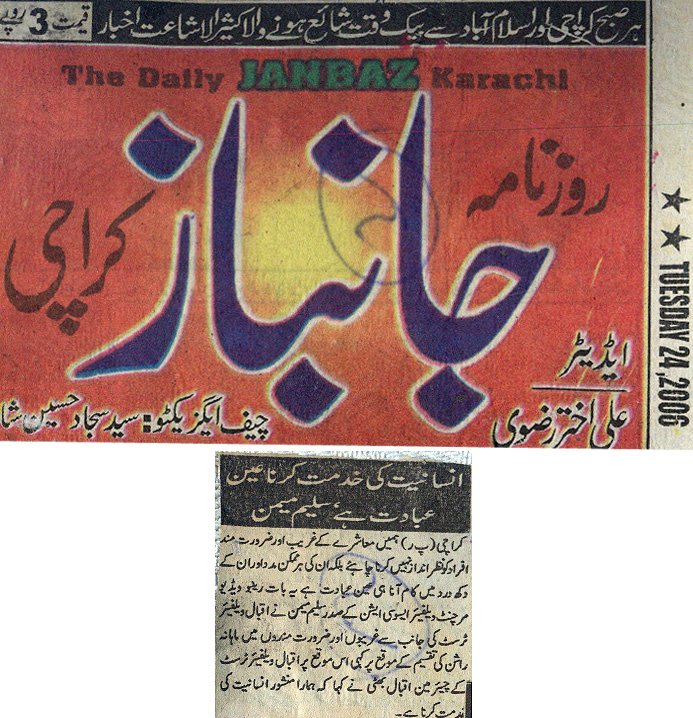 ہر صبح کراچی اور اسلام آباد سے بیک وقت شائع ہونے والا کثیر الاشاعت اخبار
قیمت 3 روپے
The Daily JANBAZ Karachi
روزنامہ
جانباز
کراچی
ایڈیٹر
علی اختر رضوی
چیف ایگزیکٹو: سید سجاد حسین شا
★ ★ TUESDAY 24, 2006
انسانیت کی خدمت کرنا عین
عبادت ہے، سلیم میمن
کراچی (پ ر) ہمیں معاشرے کے غریب اور ضرورت مند
افراد کو نظر انداز نہیں کرنا چاہئے بلکہ ان کی ہر ممکن مدد اور ان کے
دکھ درد میں کام آنا ہی عین عبادت ہے یہ بات رینبو ویڈیو
مرچنٹ ویلفیئر ایسوسی ایشن کے صدر سلیم میمن نے اقبال ویلفیئر
ٹرسٹ کی جانب سے غریبوں اور ضرورت مندوں میں ماہانہ
راشن کی تقسیم کے موقع پر کہی اس موقع پر اقبال ویلفیئر ٹرسٹ
کے چیئرمین اقبال بھٹی نے کہا کہ ہمارا منشور انسانیت کی
خدمت کرنا ہے۔